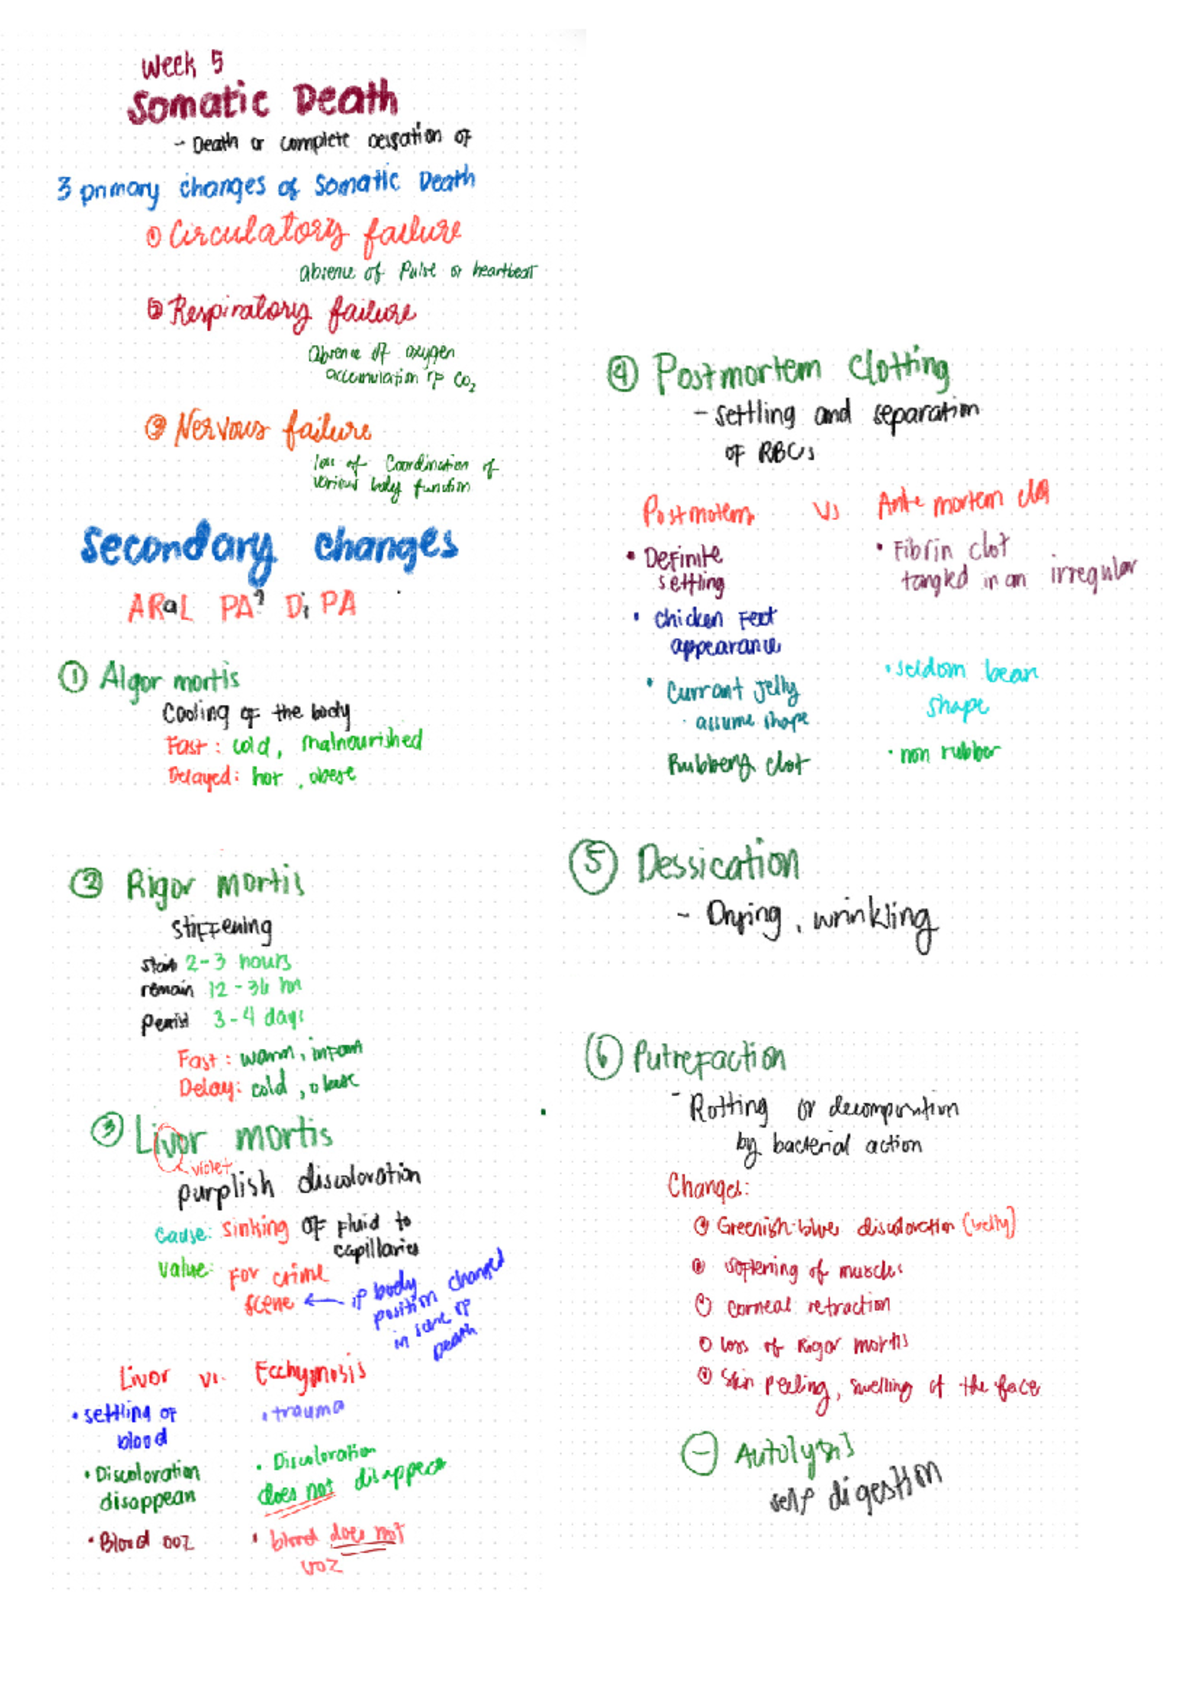 Week 5
Somatic Death
- Death or complete cessation of
3 primary changes of Somatic Death
① Circulatory failure
absence of Pulse or heartbeat
② Respiratory failure
absence of oxygen
accumulation of CO2
③ Nervous failure
loss of Coordination of
various body function
Secondary changes
ARaL PA? Di PA
① Algor mortis
Cooling of the body
Fast: cold, malnourished
Delayed: hot, obese
② Rigor mortis
stiffening
start 2-3 hours
remain 12-36 hr
Persist 3-4 days
Fast: warm, infant
Delay: cold, obese
③ Livor mortis
violet
purplish discoloration
cause: sinking of fluid to
capillaries
value: For crime
scene ← if body
position changed
in scene of
death
Livor vs. Ecchymosis
• settling of
blood
• trauma
• Discoloration
disappears
• Discoloration
does not disappear
• Blood ooz
• blood does not
ooz
④ Postmortem clotting
- settling and separation
of RBCs
Postmotem Vs Ante mortem clot
• Definite
settling
• Fibrin clot
tangled in an irregular
• Chicken Feet
appearance
• Currant jelly
• assume shape
• seldom bean
shape
Rubbery clot
• non rubber
⑤ Dessication
- Drying, wrinkling
⑥ Putrefaction
- Rotting or decomposition
by bacterial action
Changes:
Greenish-blue discoloration (belly)
softening of muscles
corneal retraction
loss of Rigor mortis
Skin peeling, swelling of the face
Autolysis
self digestion